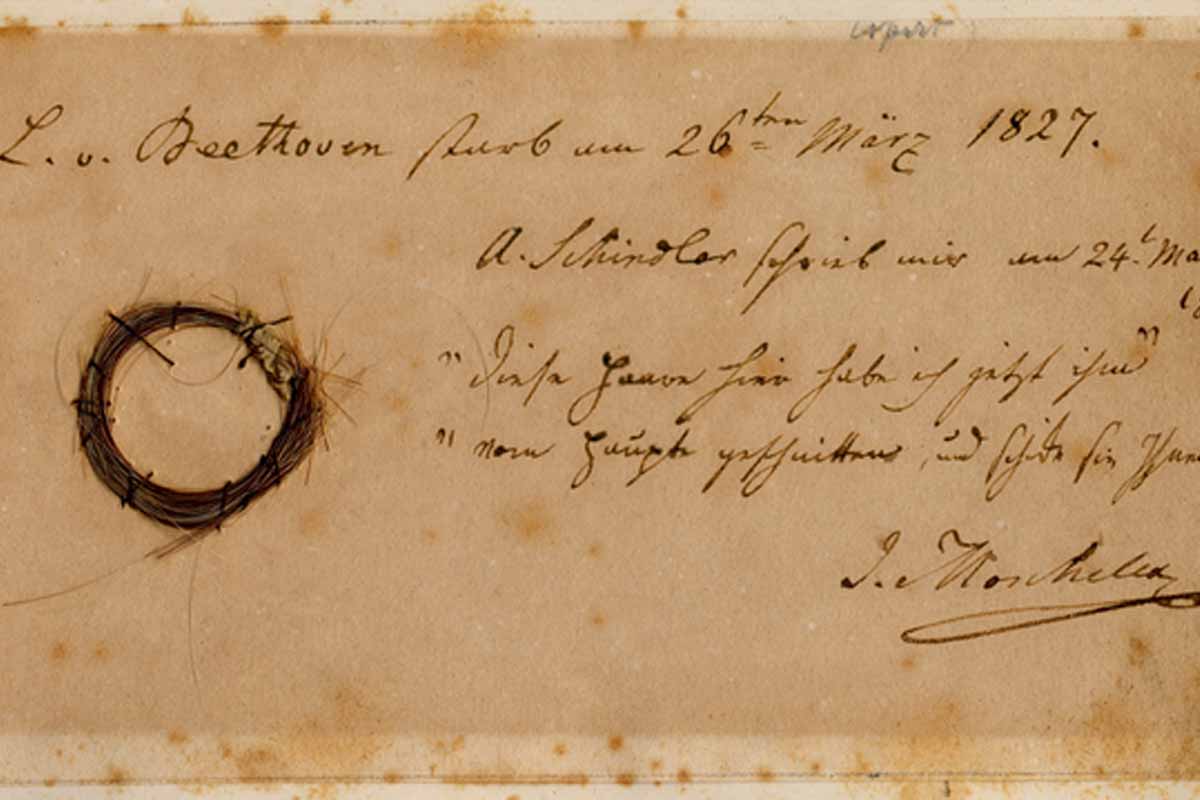 L. v. Beethoven starb am 26ten März 1827.
A. Schindler schrieb mir am 24t Mä
"Diese Haare hier habe ich jetzt ihm"
"vom Haupte geschnitten, und schicke sie Ihnen
I. Moscheles